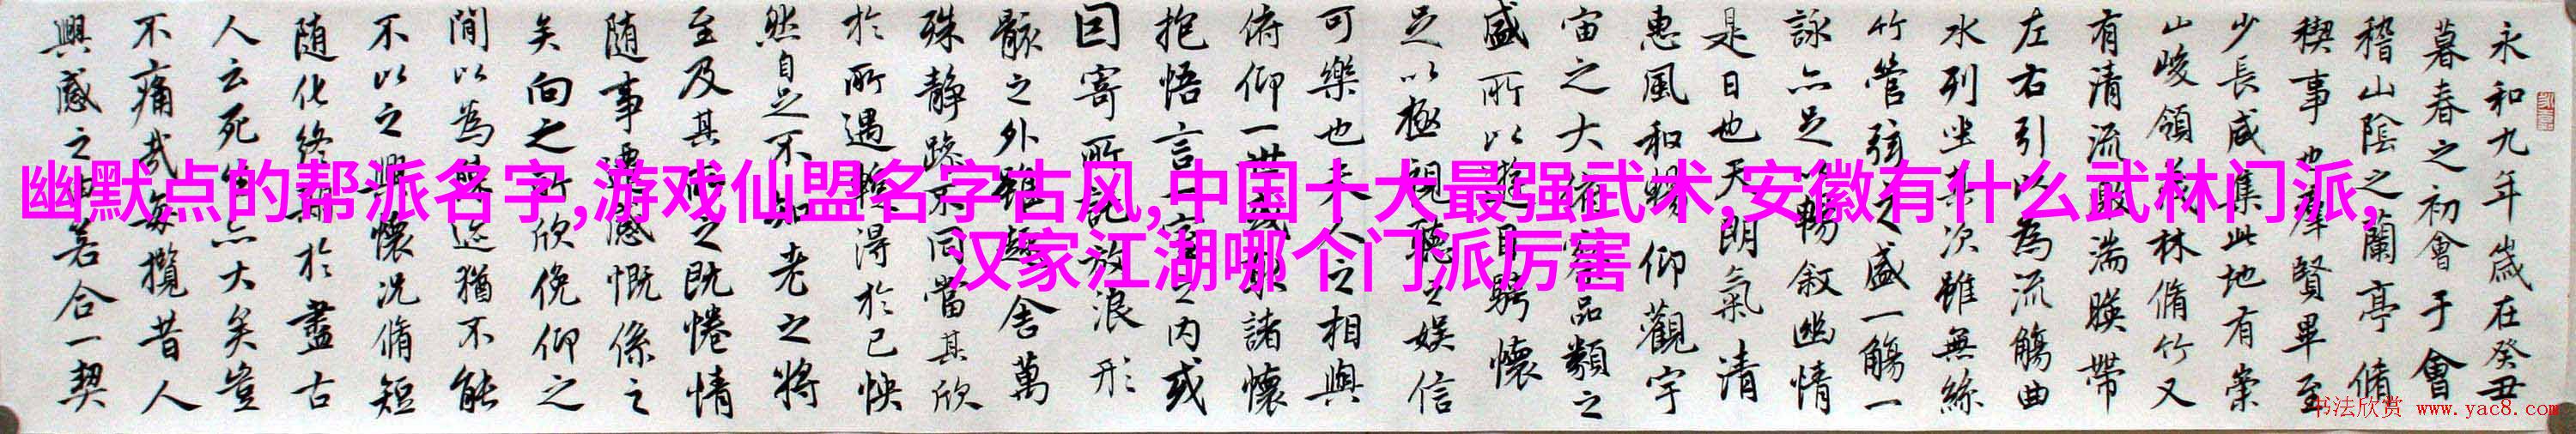 永和九年歲在癸丑
暮春之初會于會
稽山陰之蘭亭脩
稧事也羣賢畢至
少長咸集此地有崇
山峻領茂林脩竹又
有清流激湍暎帶
左右引以為流觴曲
水列坐其次雖無絲
竹管弦之盛一觴一
詠亦足以暢叙幽情
是日也天朗氣清
惠風和暢仰觀宇
宙之大俯察品類之
盛所以遊目騁懷
足以極視聽之娱信
可樂也夫人之相與
俯仰一世或取諸懷
抱悟言一室之内或
因寄所託放浪形
骸之外雖趣舍萬
殊静躁不同當其欣
於所遇暫得於己怏
然自足不知老之將
至及其所之既惓情
随事遷感慨係之
矣向之所欣俛仰之
閒以為陳迹猶不能
不以之興懷况脩短
随化終期於盡古
人云死生亦大矣豈
不痛哉每攬昔人
興感之由若合一契
幽默点的帮派名字,游戏仙盟名字古风,中国十大最强武术,安徽有什么武林门派,
汉家江湖哪个门派厉害
书法欣赏 www.yac8.com